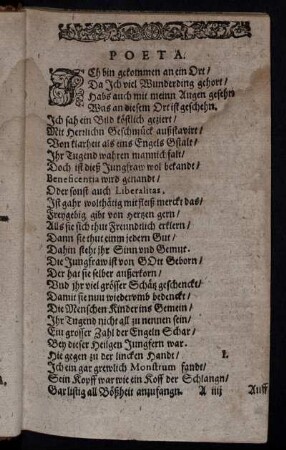 POETA.
ICh bin gekommen an ein Ort/
Da Ich viel Wunderding gehort/
Habs auch mit meinn Augen gesehn
Was an diesem Ort ist geschehn.
Ich sah ein Bild köstlich geziert/
Mit Herrlichn Geschmück außstavirt/
Von klarheit als eins Engels Gstalt/
Ihr Tugend wahren mannichfalt/
Doch ist dieß Jungfraw wol bekandt/
Beneficentia wird genandt/
Oder sonst auch Liberalitas,
Ist gahr wolthätig mit fleiß merckt das/
Freygebig gibt von herzen gern/
Alls sie sich thut Freundtlich erklern/
Dann sie thut einm jedern Gut/
Dahin steht jhr Sinn vnd Gemut.
Die Jungfraw ist von GOtt Geborn/
Der hat sie selber außerkorn/
Vnd jhr viel grösser Schätz geschenckt/
Damit sie nun wiedervmb bedenckt/
Die Menschen Kinder ins Gemein/
Ihr Tugend nicht all zu nennen sein/
Ein grosser Zahl der Engeln Schar/
Bey dieser Heilgen Jungfern war.
Hie gegen zu der lincken Handt/ I.
Ich ein gar grewlich Monstrum fandt/
Sein Kopff war wie ein Koff der Schlangn/
Gar listig all Bößheit anzufangn.
A iiij Auff